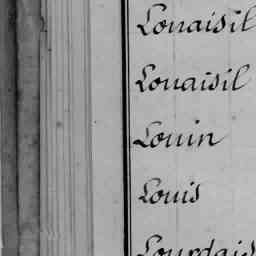 Louaisil
Louaisil
Louin
Louis
Lourdais